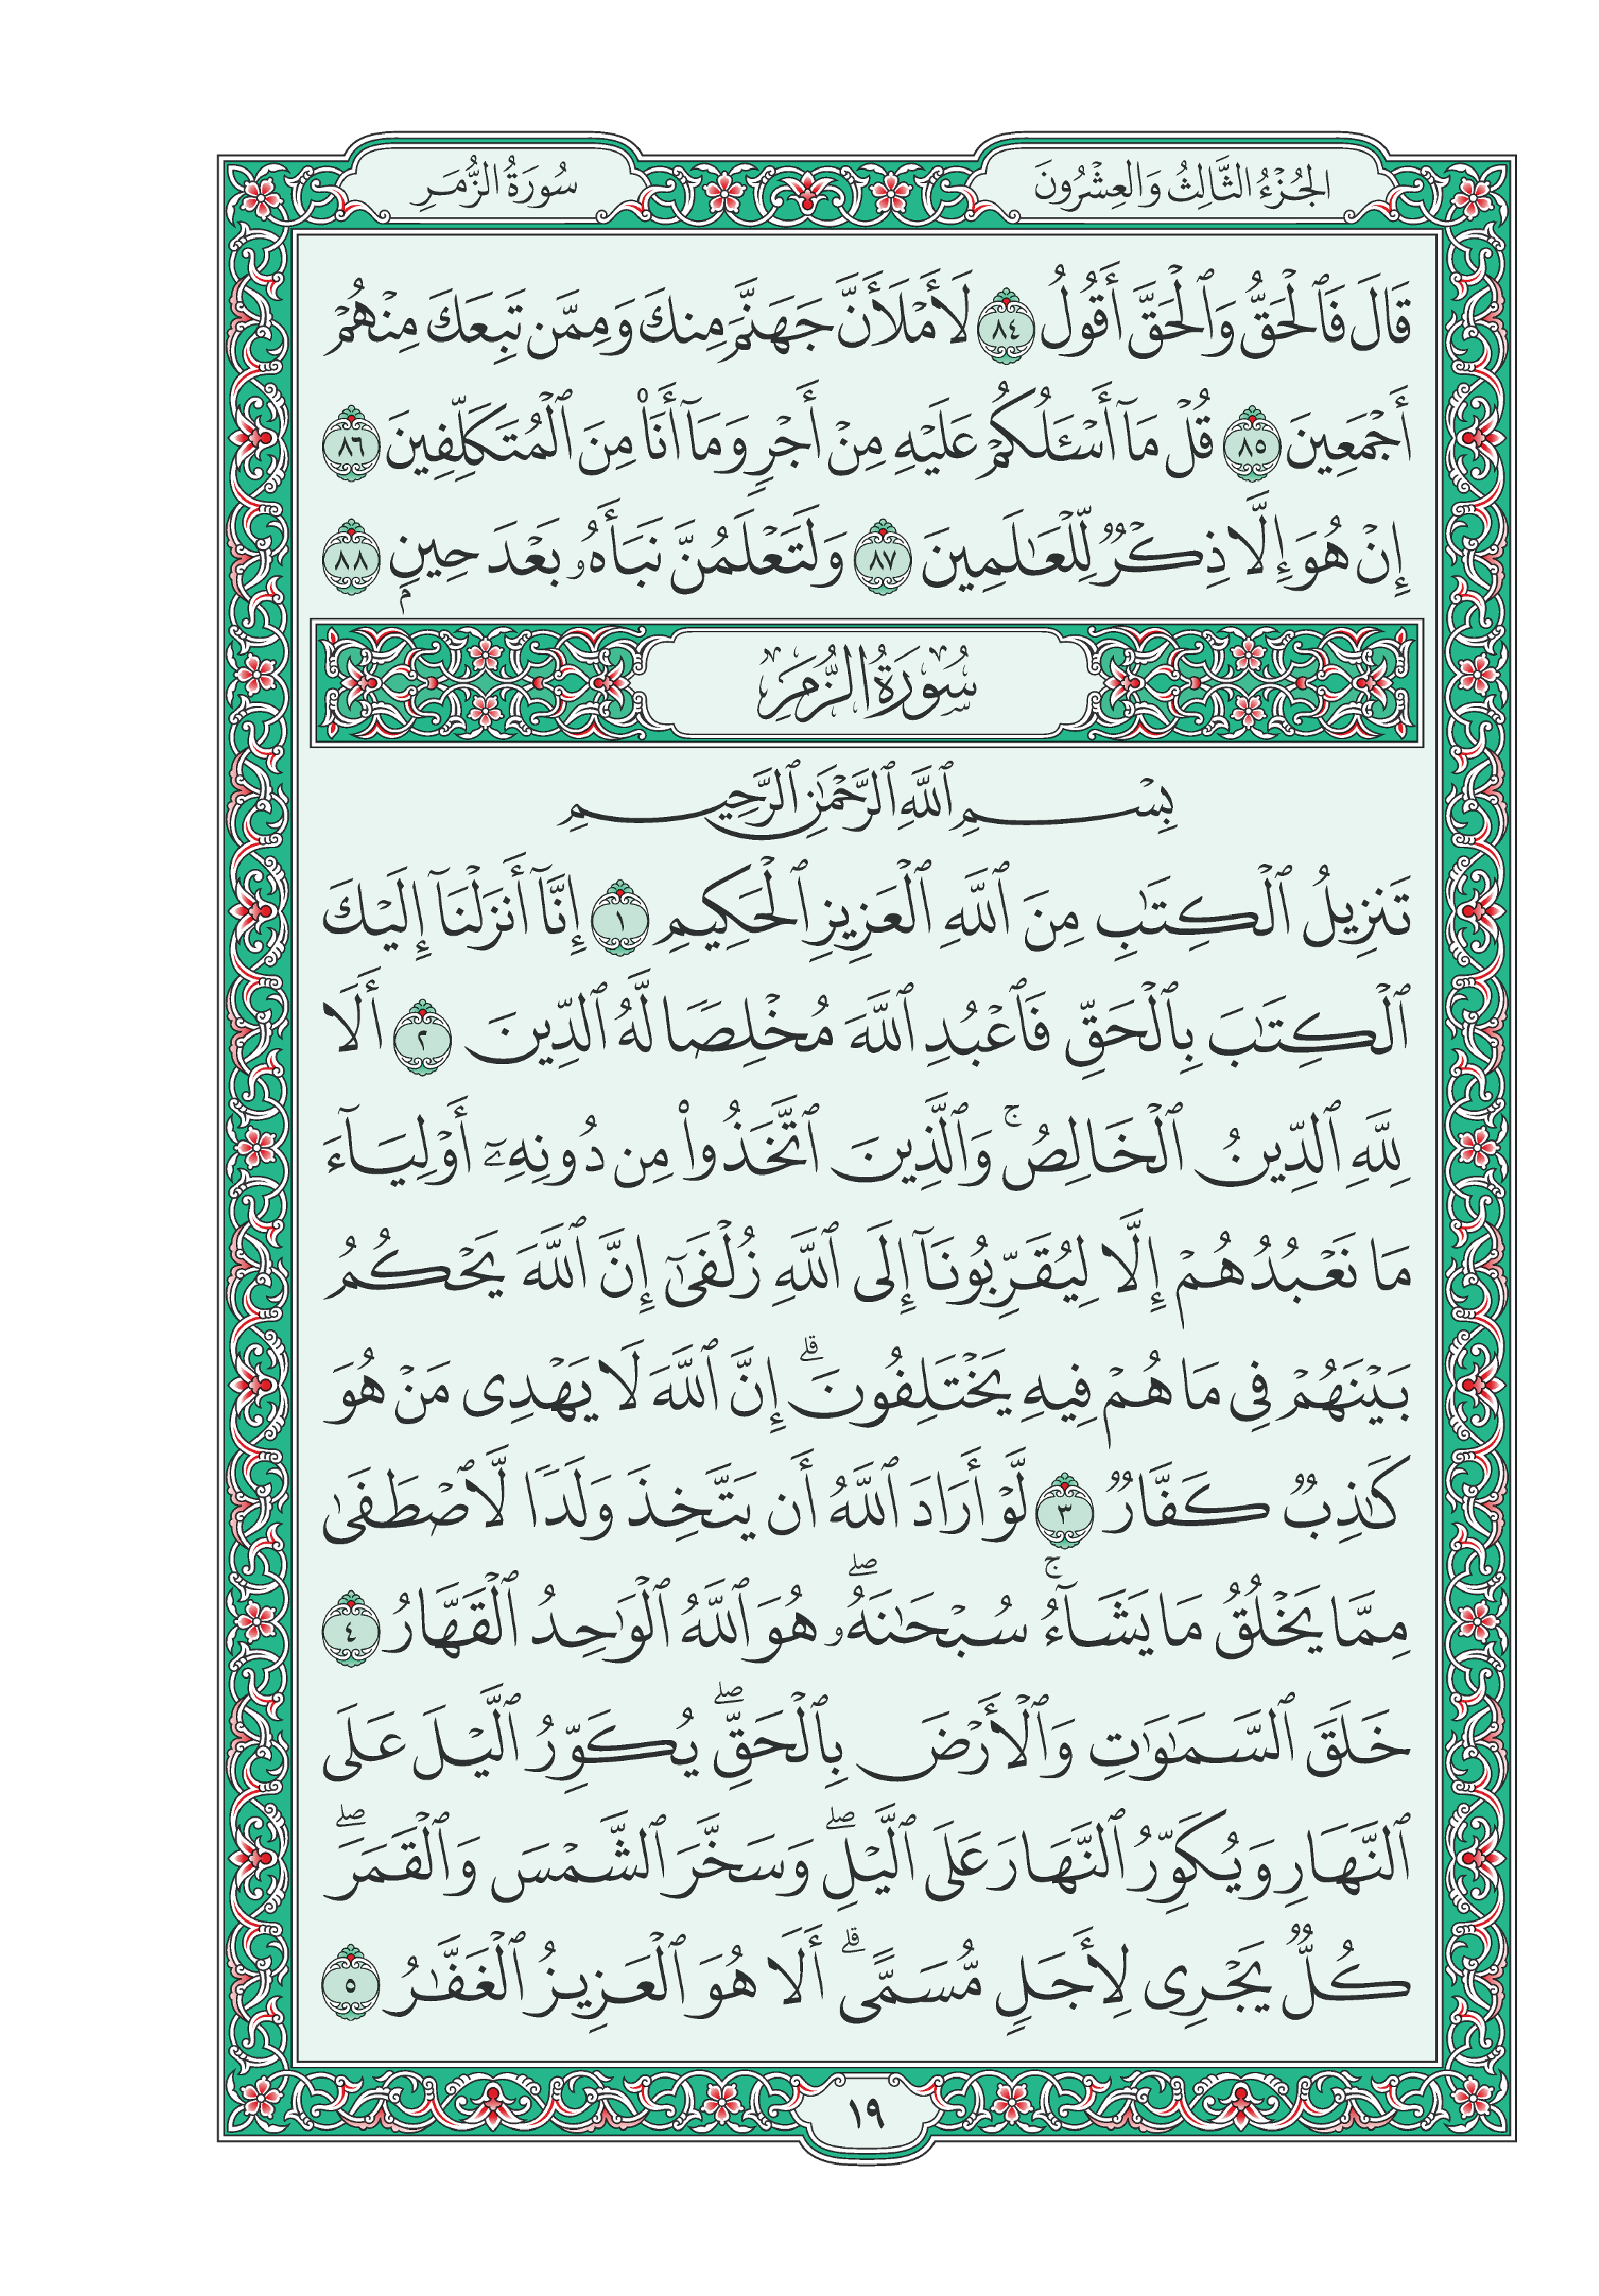 الجُزْءُ الثَّالِثُ وَالعِشْرُونَ
سُورَةُ الزُّمَرِ
قَالَ فَٱلْحَقُّ وَٱلْحَقَّ أَقُولُ ٨٤ لَأَمْلَأَنَّ جَهَنَّمَ مِنكَ وَمِمَّن تَبِعَكَ مِنْهُمْ
أَجْمَعِينَ ٨٥ قُلْ مَآ أَسْـَٔلُكُمْ عَلَيْهِ مِنْ أَجْرٍ وَمَآ أَنَا۠ مِنَ ٱلْمُتَكَلِّفِينَ ٨٦
إِنْ هُوَ إِلَّا ذِكْرٌ لِّلْعَـٰلَمِينَ ٨٧ وَلَتَعْلَمُنَّ نَبَأَهُۥ بَعْدَ حِينٍۭ ٨٨
سُورَةُ الزُّمَرِ
بِسْمِ ٱللَّهِ ٱلرَّحْمَـٰنِ ٱلرَّحِيمِ
تَنزِيلُ ٱلْكِتَـٰبِ مِنَ ٱللَّهِ ٱلْعَزِيزِ ٱلْحَكِيمِ ١ إِنَّآ أَنزَلْنَآ إِلَيْكَ
ٱلْكِتَـٰبَ بِٱلْحَقِّ فَٱعْبُدِ ٱللَّهَ مُخْلِصًا لَّهُ ٱلدِّينَ ٢ أَلَا
لِلَّهِ ٱلدِّينُ ٱلْخَالِصُ ۚ وَٱلَّذِينَ ٱتَّخَذُوا۟ مِن دُونِهِۦٓ أَوْلِيَآءَ
مَا نَعْبُدُهُمْ إِلَّا لِيُقَرِّبُونَآ إِلَى ٱللَّهِ زُلْفَىٰٓ إِنَّ ٱللَّهَ يَحْكُمُ
بَيْنَهُمْ فِى مَا هُمْ فِيهِ يَخْتَلِفُونَ ۗ إِنَّ ٱللَّهَ لَا يَهْدِى مَنْ هُوَ
كَـٰذِبٌ كَفَّارٌ ٣ لَّوْ أَرَادَ ٱللَّهُ أَن يَتَّخِذَ وَلَدًا لَّٱصْطَفَىٰ
مِمَّا يَخْلُقُ مَا يَشَآءُ ۚ سُبْحَـٰنَهُۥ ۖ هُوَ ٱللَّهُ ٱلْوَٰحِدُ ٱلْقَهَّارُ ٤
خَلَقَ ٱلسَّمَـٰوَٰتِ وَٱلْأَرْضَ بِٱلْحَقِّ ۖ يُكَوِّرُ ٱلَّيْلَ عَلَى
ٱلنَّهَارِ وَيُكَوِّرُ ٱلنَّهَارَ عَلَى ٱلَّيْلِ ۖ وَسَخَّرَ ٱلشَّمْسَ وَٱلْقَمَرَ ۖ
كُلٌّ يَجْرِى لِأَجَلٍ مُّسَمًّى ۗ أَلَا هُوَ ٱلْعَزِيزُ ٱلْغَفَّـٰرُ ٥
١٩